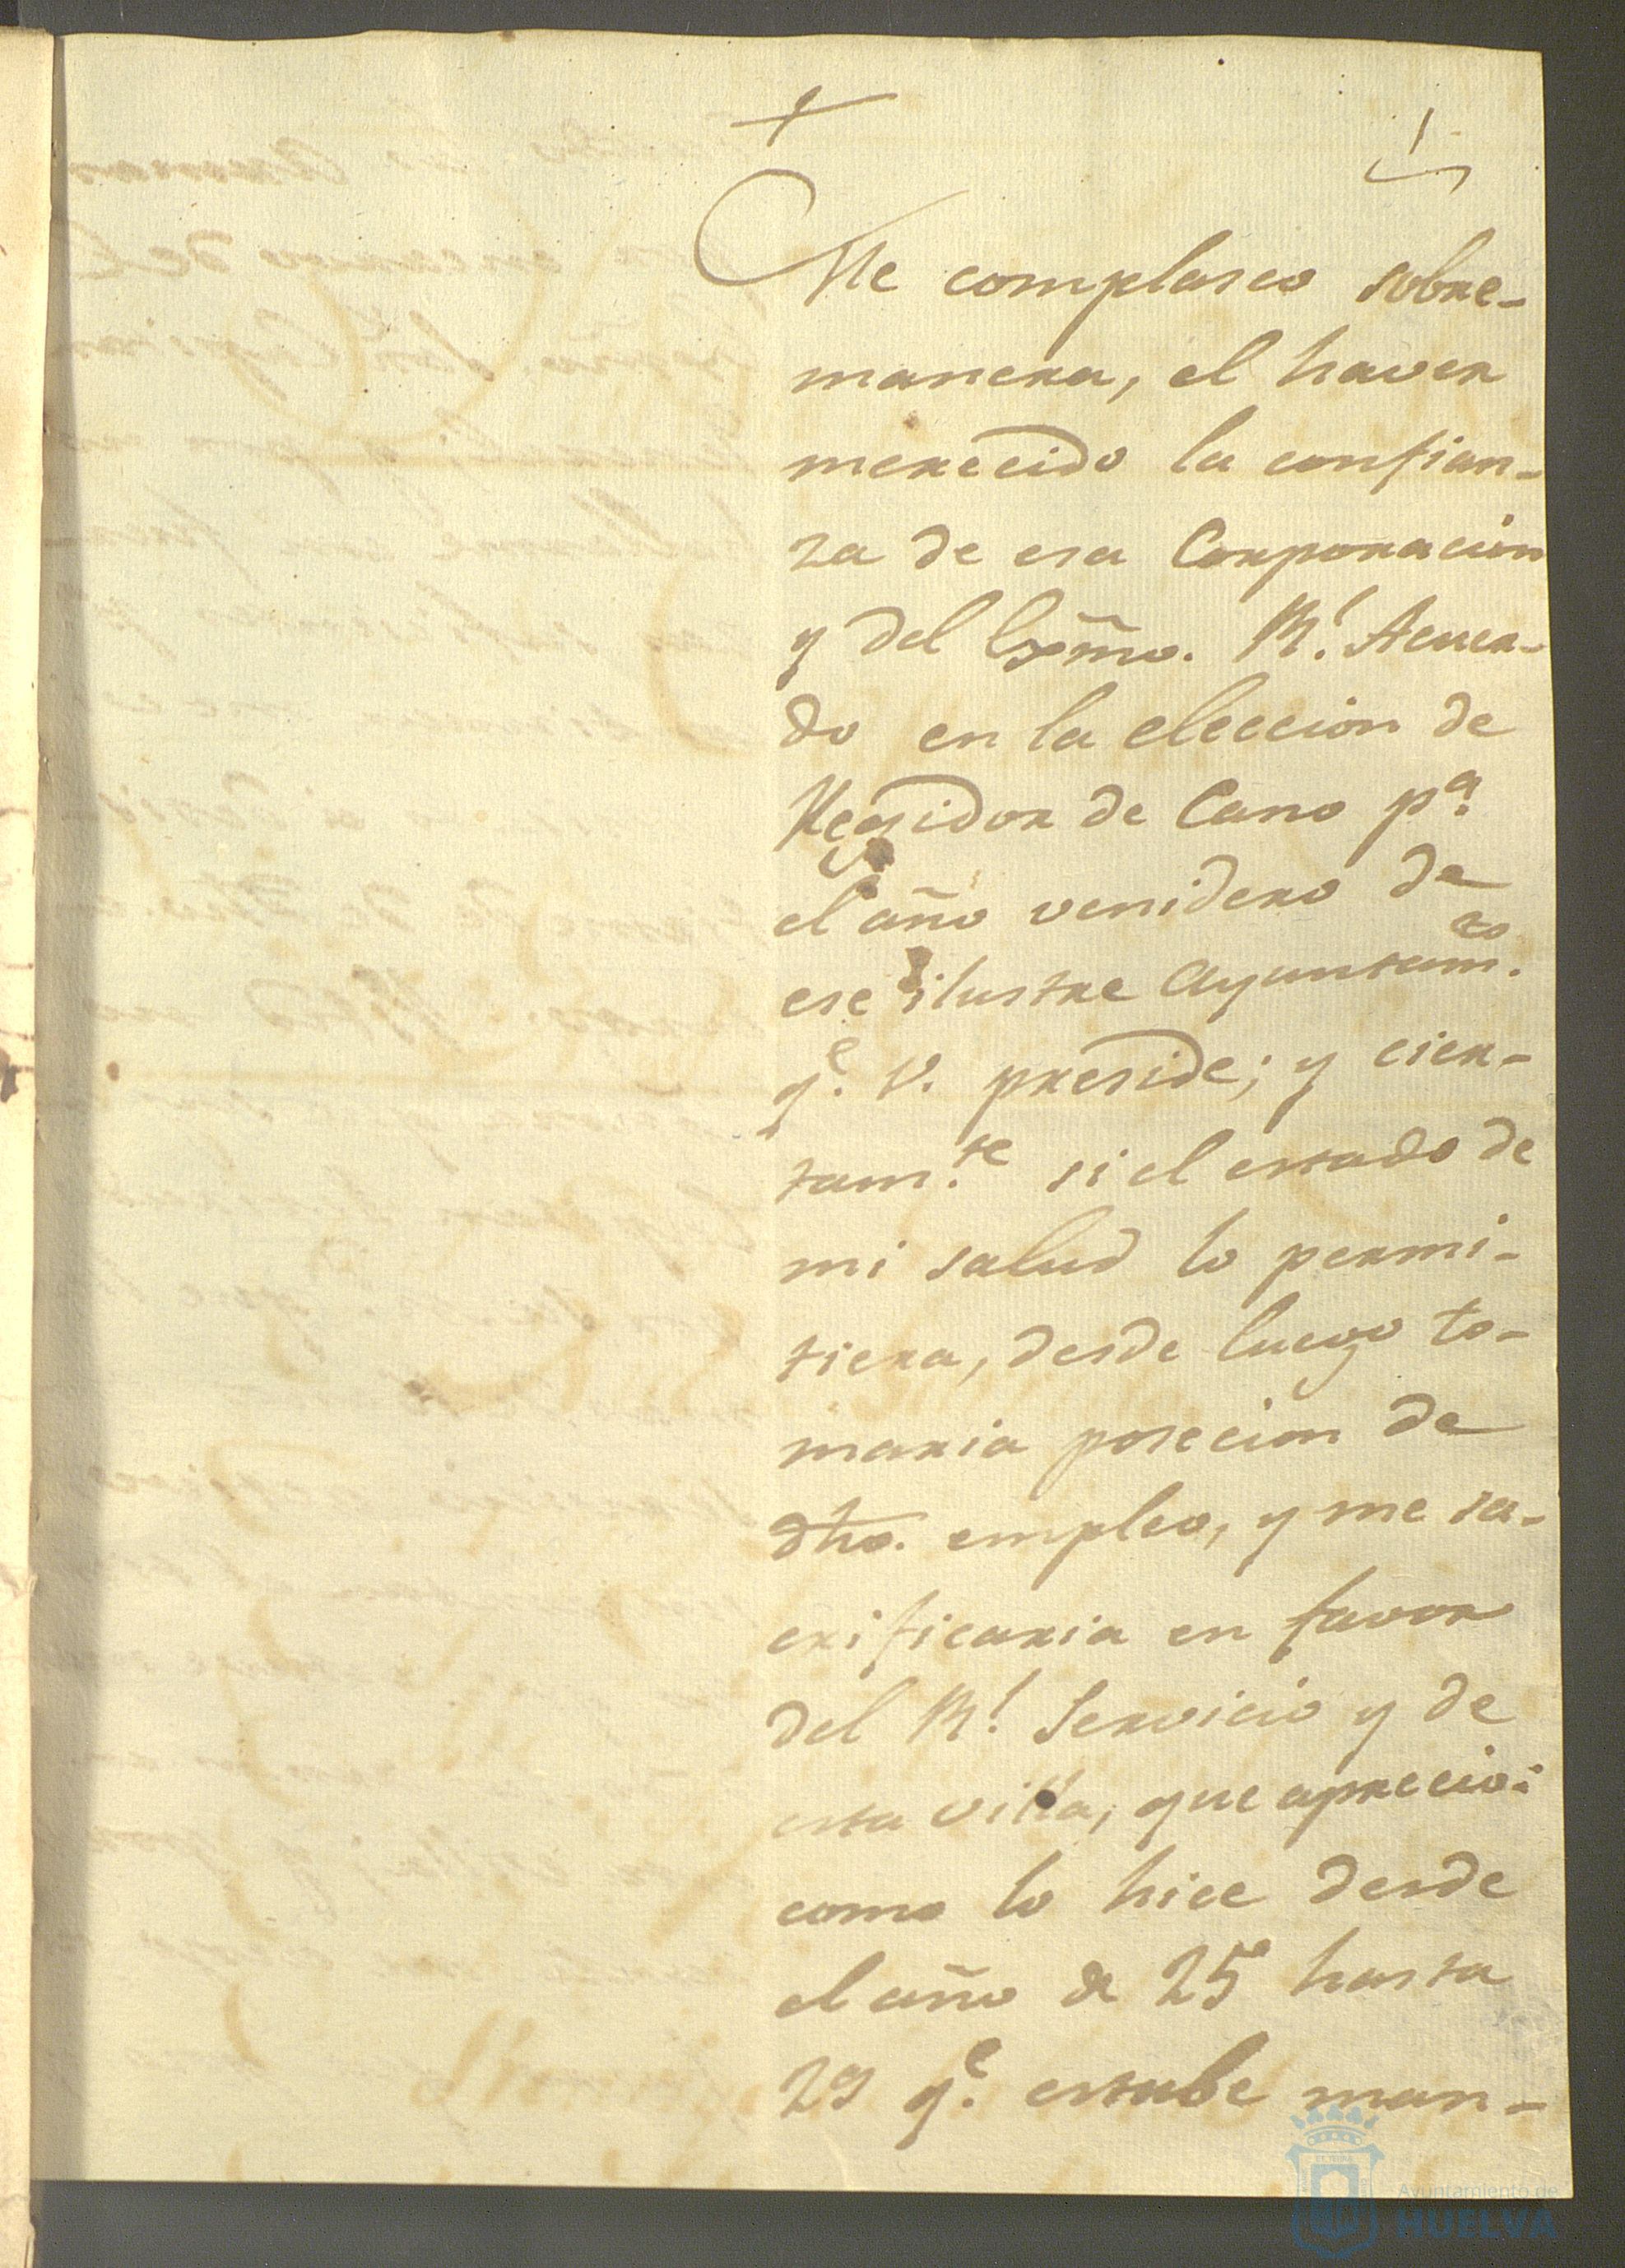 1
Me complasco sobre-
manera, el haver
merecido la confian-
za de esa Corporacion
y del Exm̃o. Rl. Acuer-
do en la eleccion de
Regidor de Cano pa.
el año venidero de
ese ilustre Ayuntamto.
qe. V. preside; y cier-
tamte. si el estado de
mi salud lo permi-
tiera, desde luego to-
maria posecion de
dho. empleo, y me sa-
crificaria en favor
del Rl. Servicio y de
esta villa, que aprecio:
como lo hice desde
el año de 25 hasta
29 qe. estube man-
Ayuntamiento de
HUELVA